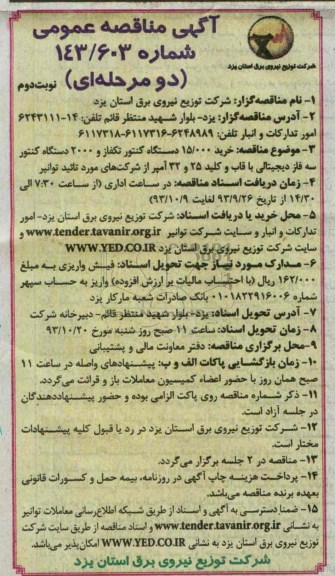 آگهی مناقصه عمومی
شماره ۱۴۳/۶۰۳
(دو مرحله‌ای)
نوبت دوم
شرکت توزیع نیروی برق استان یزد
۱- نام مناقصه‌گزار: شرکت توزیع نیروی برق استان یزد
۲- آدرس مناقصه‌گزار: یزد- بلوار شهید منتظر قائم تلفن: ۱۴-۶۲۴۳۱۱۱
امور تدارکات و انبار تلفن: ۶۲۴۸۹۸۹-۶۱۱۷۳۱۶-۶۱۱۷۳۱۸
۳- موضوع مناقصه: خرید ۱۵/۰۰۰ دستگاه کنتور تکفاز و ۲۰۰۰ دستگاه کنتور
سه فاز دیجیتالی با قاب و کلید ۲۵ و ۳۲ آمپر از شرکت‌های مورد تائید توانیر
۴- زمان دریافت اسناد مناقصه: در ساعات اداری (از ساعت ۷:۳۰ الی
۱۴/۳۰ از تاریخ ۹۳/۹/۲۶ لغایت ۹۳/۱۰/۹)
۵- محل خرید یا دریافت اسناد: شرکت توزیع نیروی برق استان یزد- امور
تدارکات و انبار و سایت شرکت توانیر www.tender.tavanir.org.ir و
سایت شرکت توزیع نیروی برق استان یزد WWW.YED.CO.IR
۶- مدارک مورد نیاز جهت تحویل اسناد: فیش واریزی به مبلغ
۱۶۲/۰۰۰ ریال (با احتساب مالیات بر ارزش افزوده) واریز به حساب سپهر
شماره ۰۱۰۱۸۲۲۹۱۶۰۰۶ بانک صادرات شعبه مارکار یزد
۷- آدرس تحویل اسناد: یزد- بلوار شهید منتظر قائم- دبیرخانه شرکت
۸- زمان تحویل اسناد: ساعت ۱۱ صبح روز شنبه مورخ ۹۳/۱۰/۲۰
۹- محل برگزاری مناقصه: دفتر معاونت مالی و پشتیبانی
۱۰- زمان بازگشایی پاکات الف و ب: پیشنهادهای واصله در ساعت ۱۱
صبح همان روز با حضور اعضاء کمیسیون معاملات باز و قرائت می‌گردد.
۱۱- ذکر شماره مناقصه روی پاکت الزامی بوده و حضور پیشنهاددهندگان
در جلسه آزاد است.
۱۲- شرکت توزیع نیروی برق استان یزد در رد یا قبول کلیه پیشنهادات
مختار است.
۱۳- مناقصه در ۲ جلسه برگزار می‌گردد.
۱۴- پرداخت هزینه چاپ آگهی در روزنامه، بیمه حمل و کسورات قانونی
بعهده برنده مناقصه می‌باشد.
۱۵- ضمنا دسترسی به آگهی و اسناد از طریق شبکه اطلاع‌رسانی معاملات توانیر
به نشانی www.tender.tavanir.org.ir و اسناد مناقصه از طریق سایت شرکت
توزیع نیروی برق استان یزد به نشانی WWW.YED.CO.IR امکان‌پذیر می‌باشد.
شرکت توزیع نیروی برق استان یزد